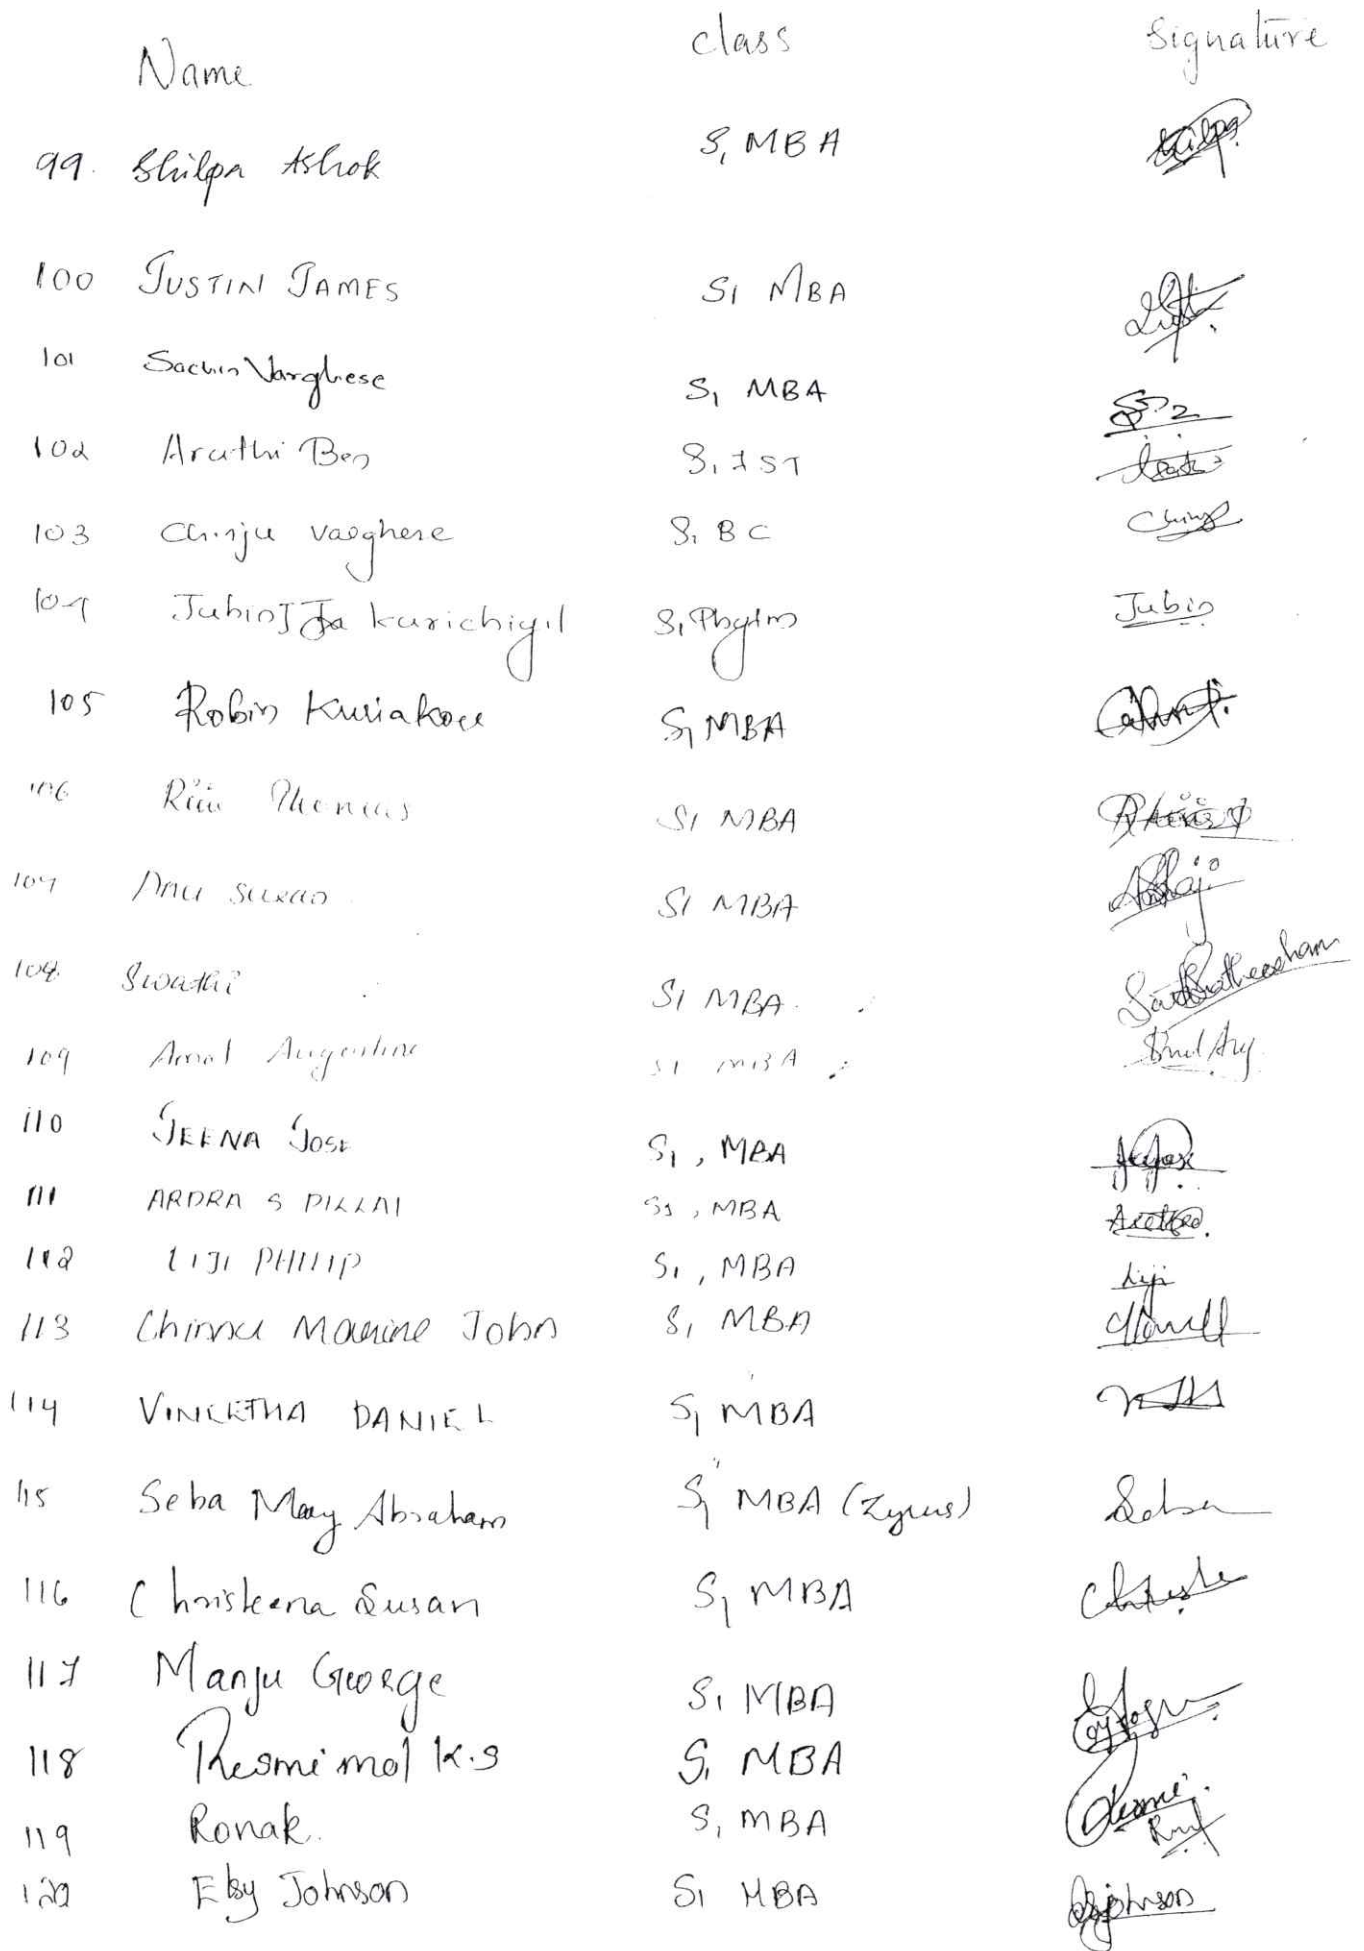 Name class Signature
99. Shilpa Ashok S1 MBA
100 JUSTIN JAMES S1 MBA
101 Sachin Varghese S1 MBA
102 Arathi Ben S1 IST
103 Chinju Varghese S1 BC
104 Jubin J Kurichiyil S1
105 Robin Kuriakose S1 MBA
106 Thomas S1 MBA
107 Anu S1 MBA
108 Swathi S1 MBA
109 Amal Augustine S1 MBA
110 JEENA JOSE S1, MBA
111 ARDRA S PILLAI S1, MBA
112 LIJI PHILIP S1, MBA Liji
113 Chinnu Maurine John S1 MBA
114 VINEETHA DANIEL S1 MBA
115 Seba Mary Abraham S1 MBA (Zyrus) Seba
116 Christeena Susan S1 MBA
117 Manju George S1 MBA
118 Resmimol K.S S1 MBA
119 Ronak. S1 MBA
120 Eby Johnson S1 MBA